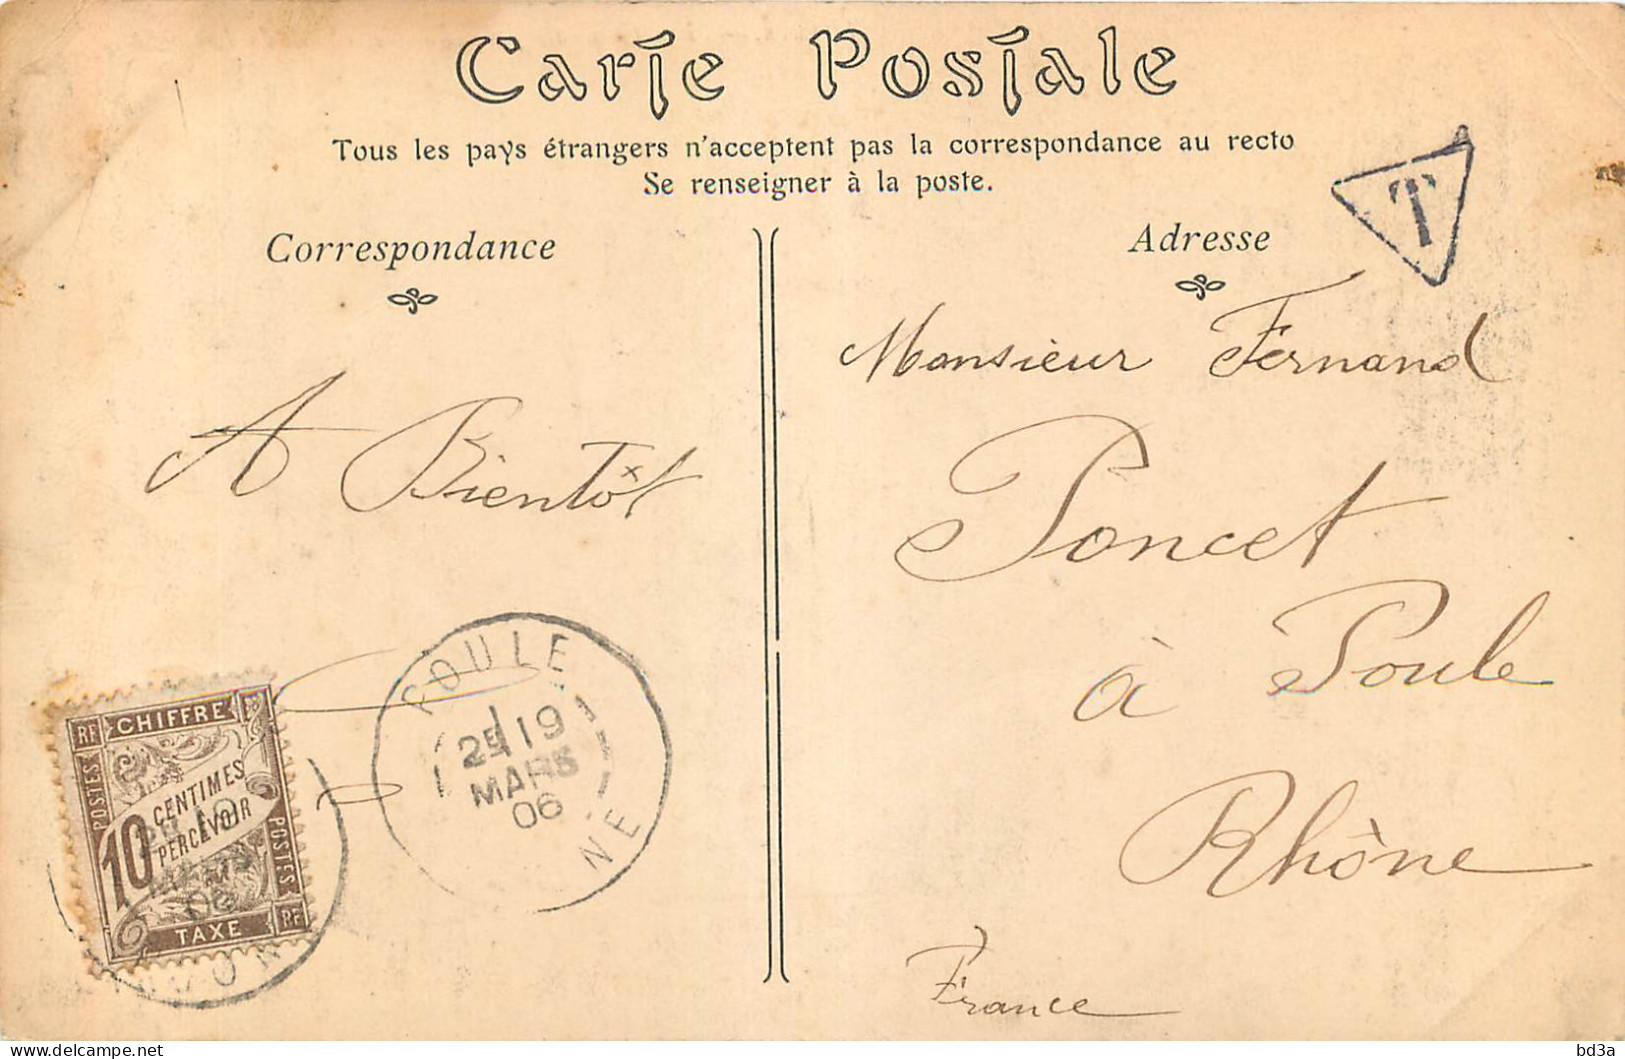 Carte Postale
Tous les pays étrangers n'acceptent pas la correspondance au recto
Se renseigner à la poste.
Correspondance
Adresse
T
Monsieur Fernand
Poncet
à Poule
Rhône
France
A Bientôt
POULE
2E 19
MARS
06
NE
RF CHIFFRE
POSTES
10 CENTIMES
PERCEVOIR
POSTES
TAXE RF
bd3a